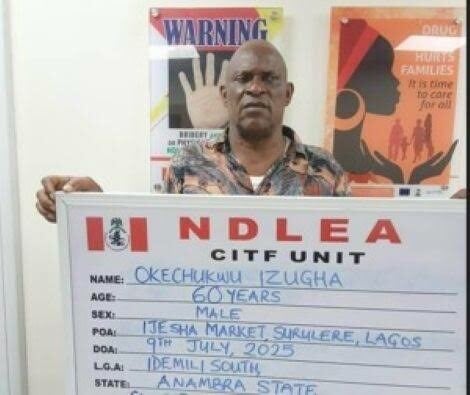 WARNING
BRIBERY
DRUG
HURTS
FAMILIES
It is time
to care
for all
NDLEA
CITF UNIT
NAME: OKECHUKWU IZUGHA
AGE: 60 YEARS
SEX: MALE
POA: IJESHA MARKET, SURULERE, LAGOS
DOA: 9TH JULY, 2025
L.G.A: IDEMILI SOUTH,
STATE: ANAMBRA STATE